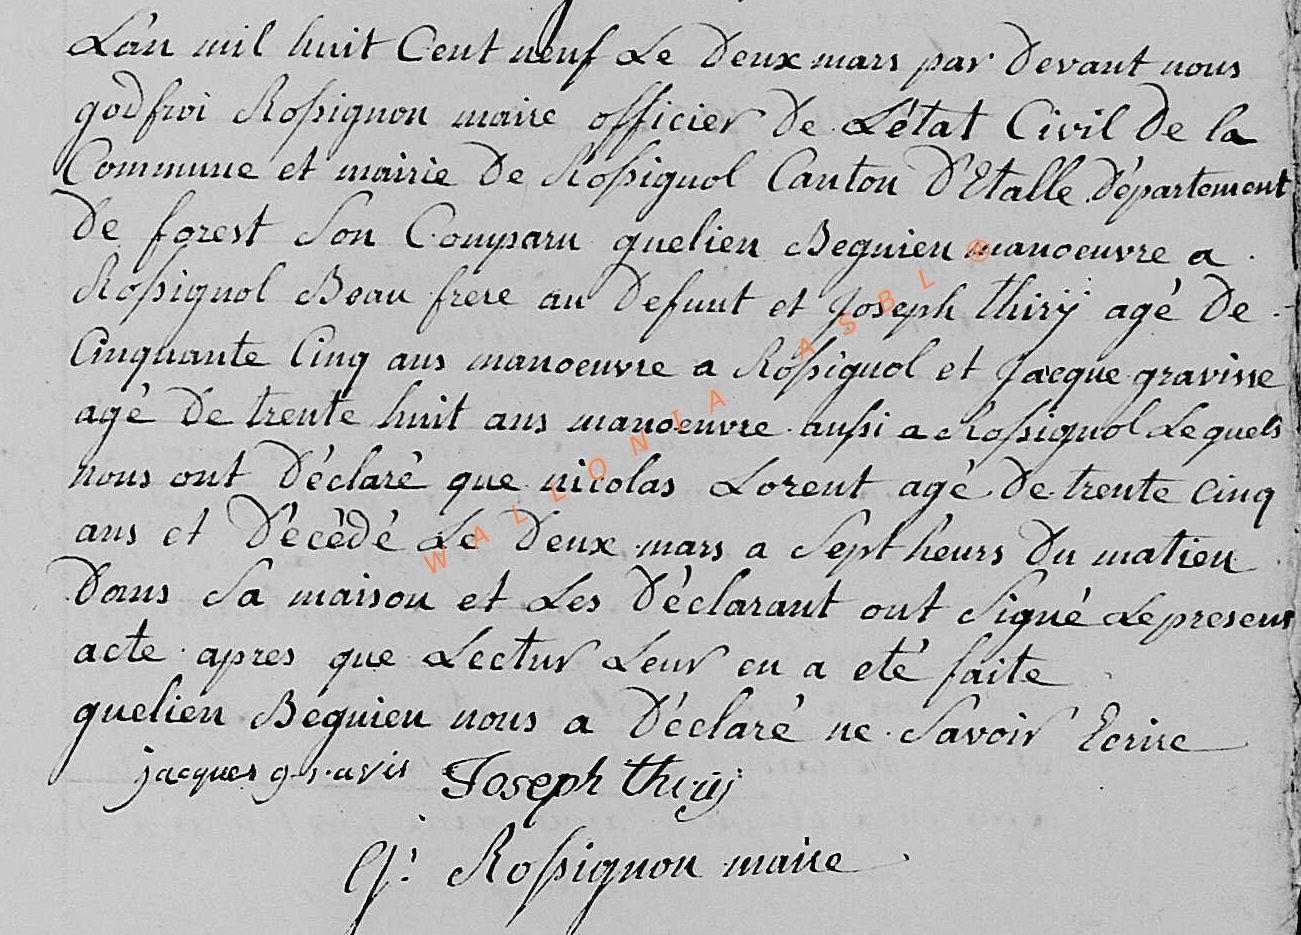 L'an mil huit Cent neuf Le Deux mars par Devant nous
godfroi Rossignon maire officier De L'état Civil De la
Commune et mairie De Rossignol Canton D'Etalle Département
De forest Son Comparu quelien Beguien manoeuvre a
Rossignol Beau frere au Defunt et Joseph thirÿ agé De
Cinquante Cinq ans manoeuvre a Rossignol et Jacque gravisse
agé De trente huit ans manoeuvre aussi a Rossignol Lequels
nous ont Déclaré que nicolas Lorent agé De trente cinq
ans et Décédé Le Deux mars a Sept heurs Du matien
Dans Sa maison et Les Déclarant ont Signé Le present
acte apres que Lectur Leur en a eté faite
quelien Beguien nous a Déclaré ne Savoir Ecrire
jacques gravis Joseph thirÿ
G: Rossignon maire
WALLONIA ASBL ®